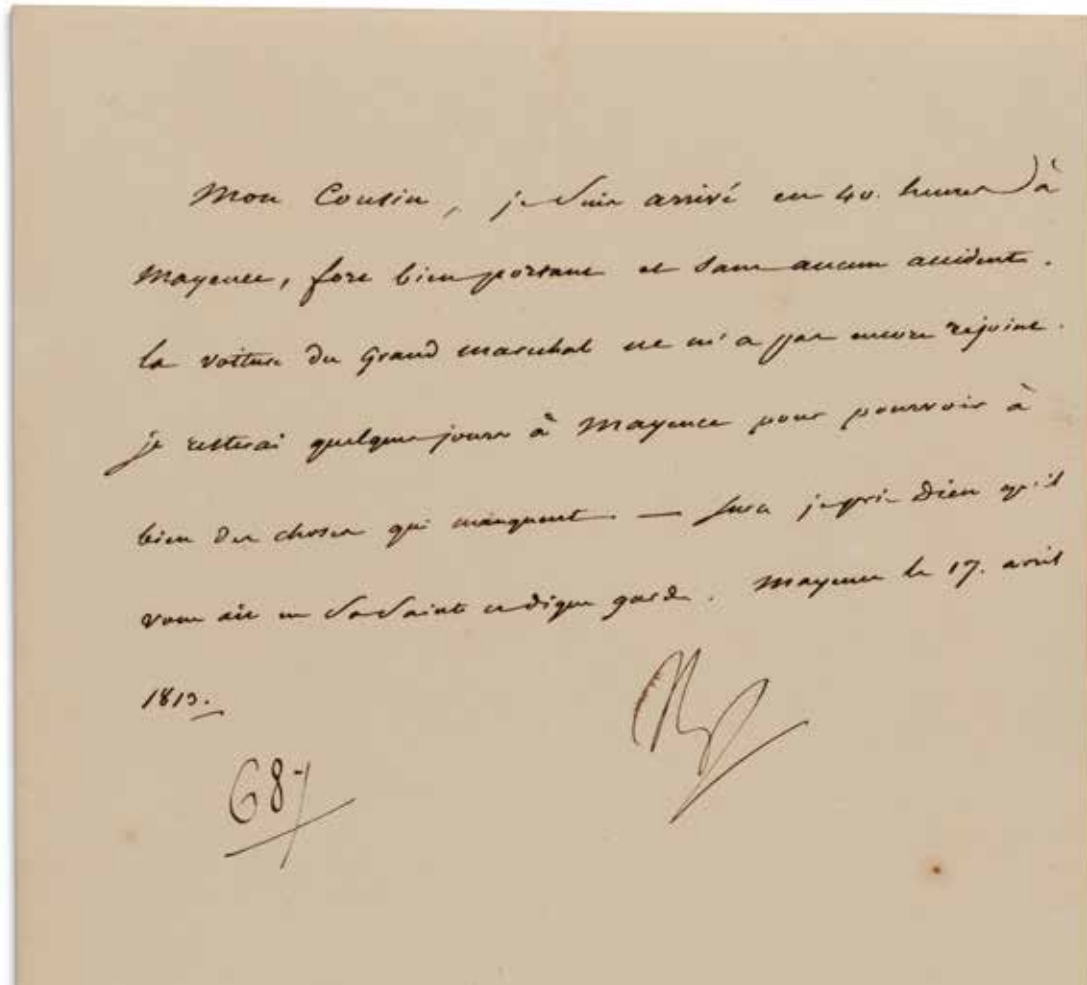 Mon Cousin, je suis arrivé en 40. heures à
Mayence, fort bien portant et sans aucun accident.
la voiture du Grand marechal ne m'a pas encore rejoint.
je resterai quelques jours à Mayence pour pourvoir à
bien des choses qui manquent. — Sur ce je prie Dieu qu'il
vous ait en Sa Sainte et digne garde. Mayence le 17. avril
1813.
Np
687